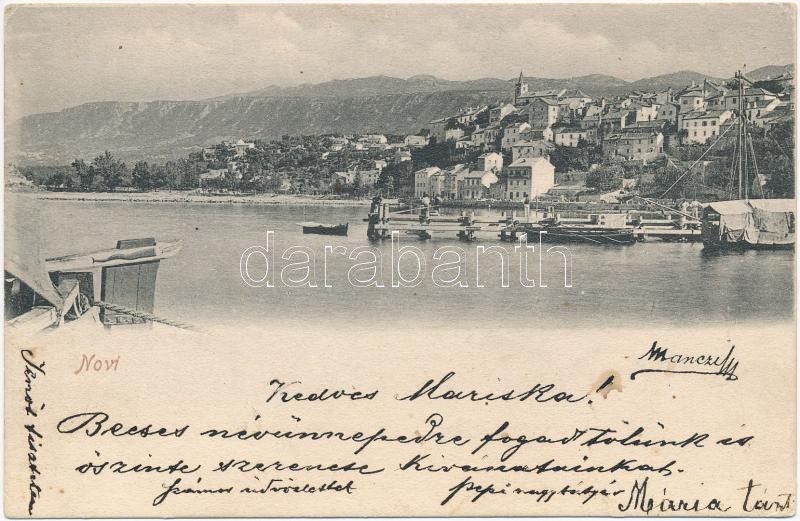 darabanth
Novi
Manczi
Kedves Mariska!
Becses névünnepedre fogad tőlünk is
őszinte szerencse kivánatainkat.
számos üdvözlettel
pepi nagybátyád
Mária tánt